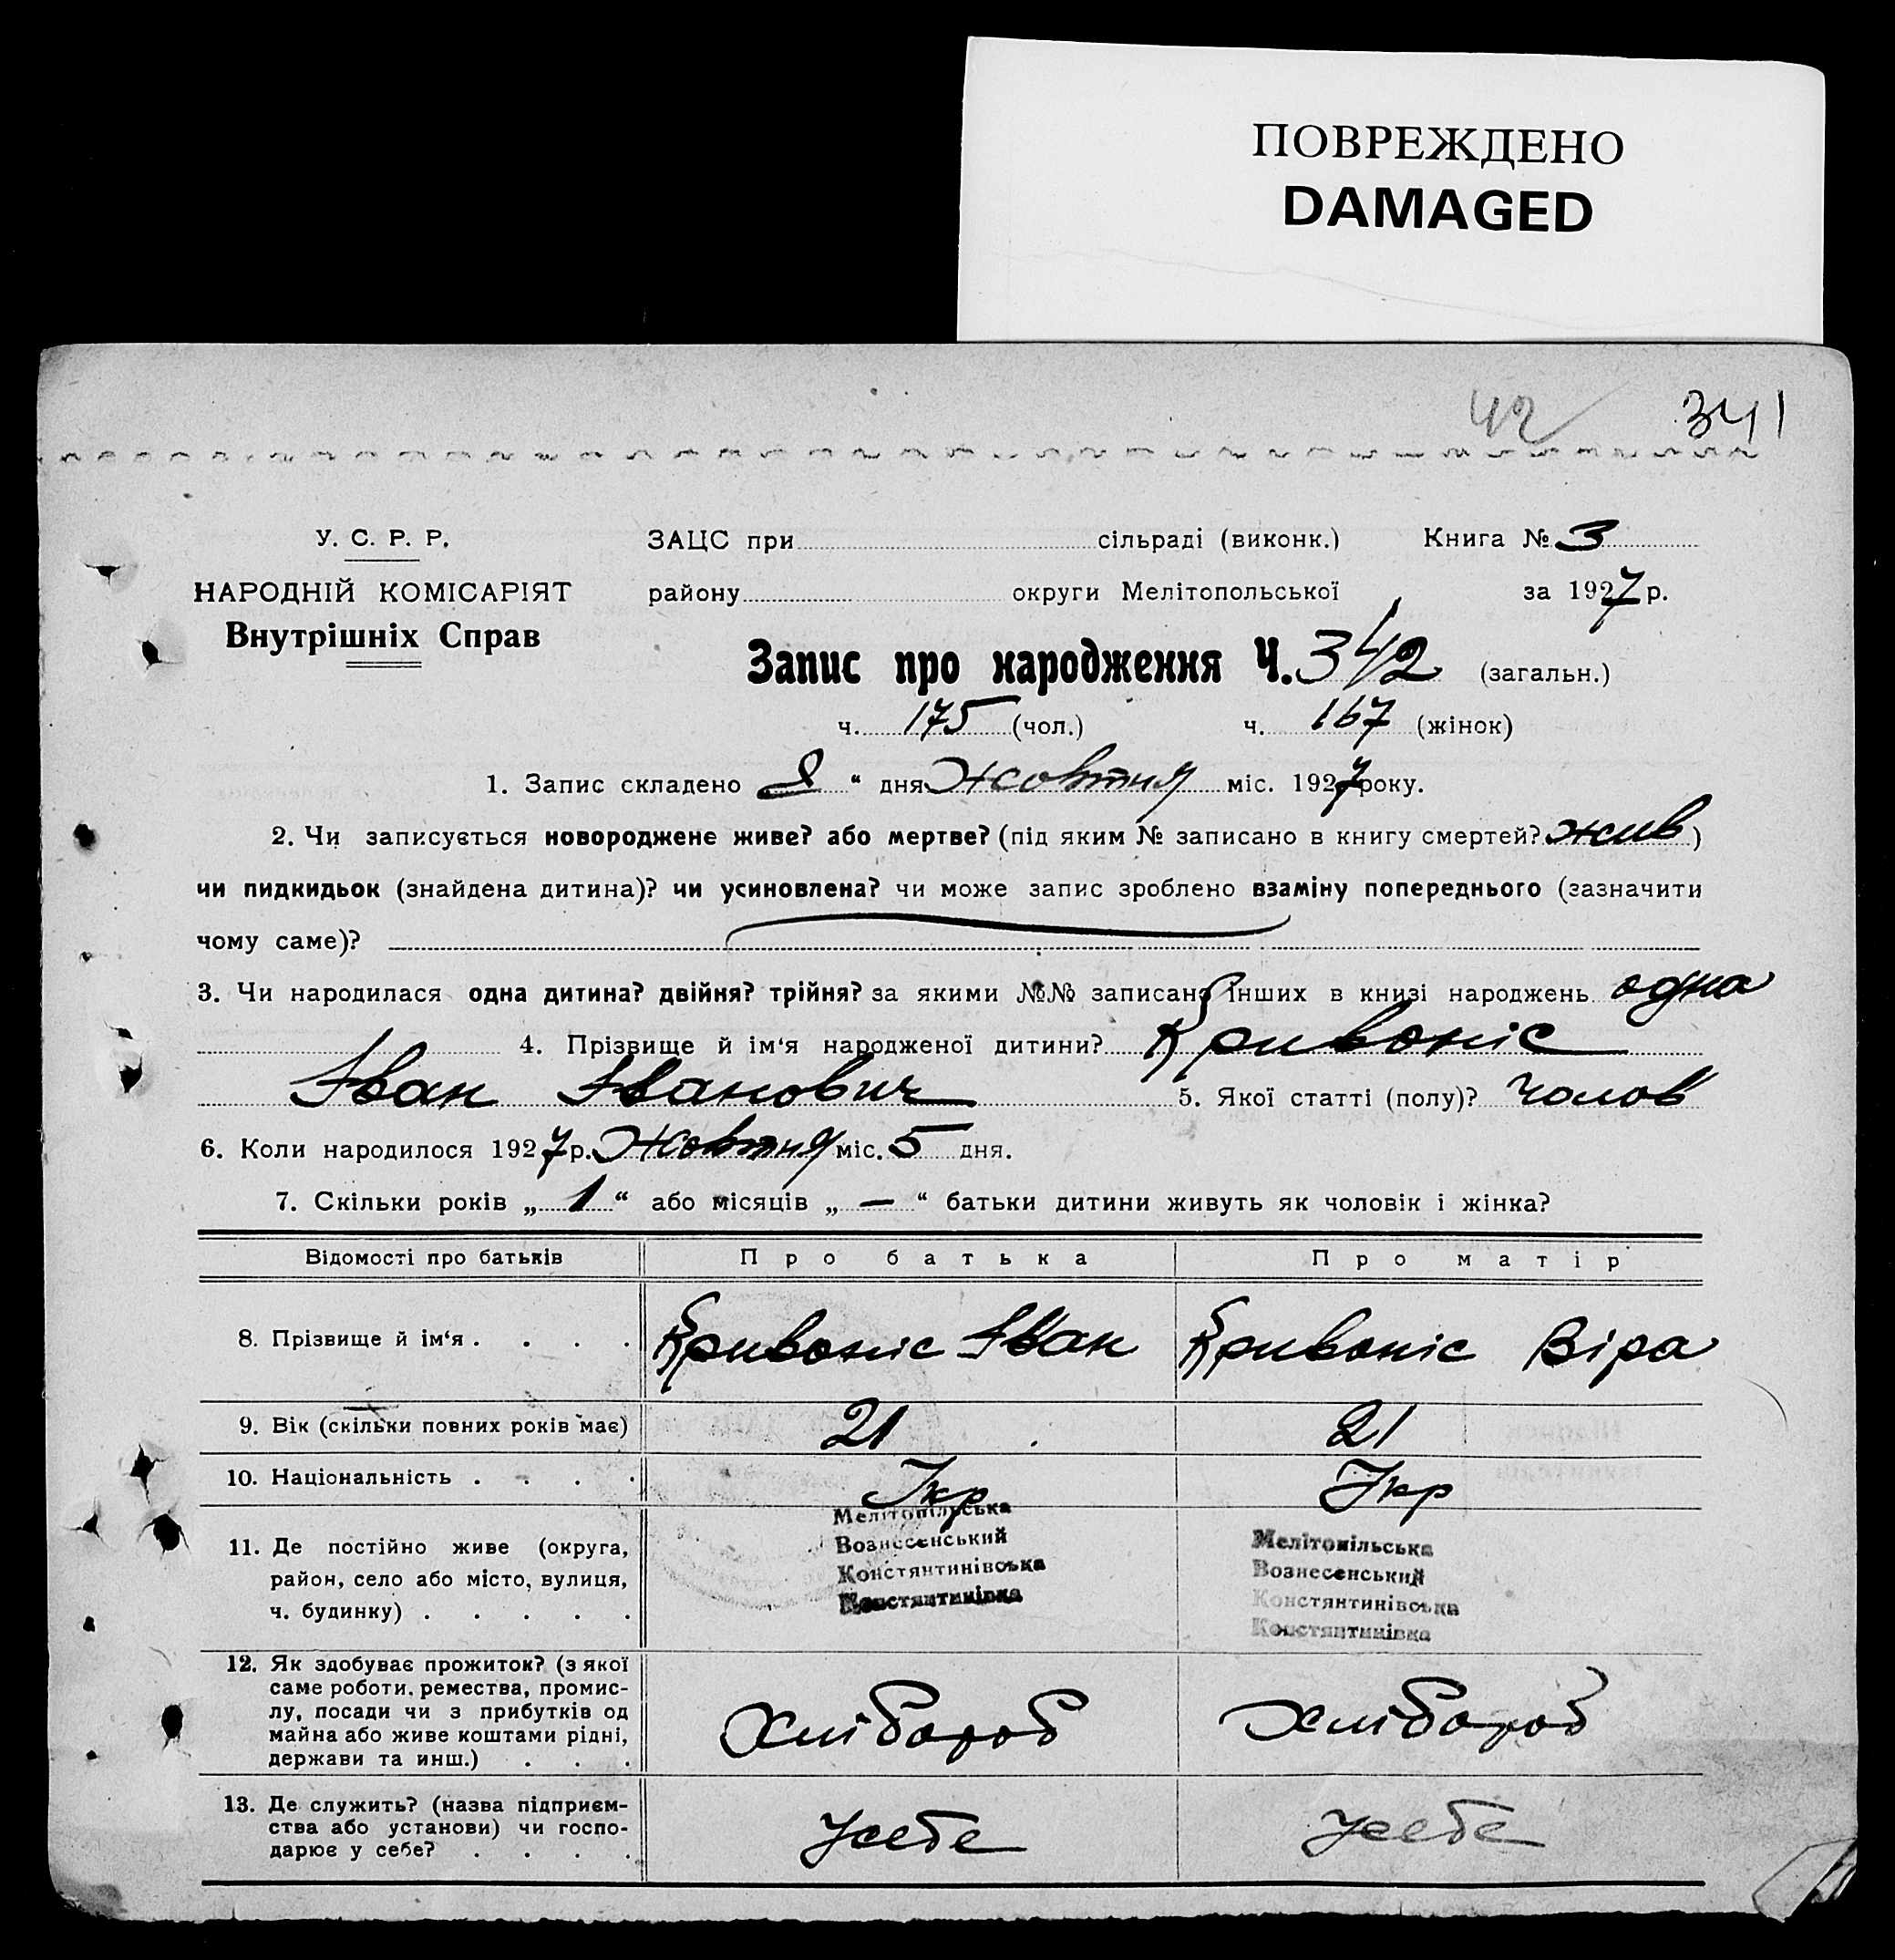 ПОВРЕЖДЕНО
DAMAGED
42 341
У. С. Р. Р. ЗАЦС при сільраді (виконк.) Книга № 3
НАРОДНІЙ КОМІСАРІЯТ району округи Мелітопольської за 1927 р.
Внутрішніх Справ
Запис про народження Ч. 342 (загальн.)
ч. 175 (чол.) ч. 167 (жінок)
1. Запис складено 8 “ дня Жовтня міс. 1927 року.
2. Чи записується новороджене живе? або мертве? (під яким № записано в книгу смертей? жив )
чи пидкидьок (знайдена дитина)? чи усиновлена? чи може запис зроблено взаміну попереднього (зазначити
чому саме)?
3. Чи народилася одна дитина? двійня? трійня? за якими №№ записано інших в книзі народжень одна
4. Прізвище й ім‘я народженої дитини? Кривоніс
Іван Іванович 5. Якої статті (полу)? чолов
6. Коли народилося 1927 р. Жовтня міс. 5 дня.
7. Скільки років „ 1 “ або місяців „ — “ батьки дитини живуть як чоловік і жінка?
Відомості про батьків Про батька Про матір
8. Прізвище й ім‘я . . . . Кривоніс Іван Кривоніс Віра
9. Вік (скільки повних років має) 21 21
10. Національність . . . . Укр Укр
11. Де постійно живе (округа,
район, село або місто, вулиця,
ч. будинку) . . . . .
Мелітопільська
Вознесенський
Констянтинівська
Констянтинівка
Мелітопільська
Вознесенський
Констянтинівська
Констянтинівка
12. Як здобуває прожиток? (з якої
саме роботи, ремества, промис-
лу, посади чи з прибутків од
майна або живе коштами рідні,
держави та инш.) . . .
Хлібороб Хлібороб
13. Де служить? (назва підприєм-
ства або установи) чи госпо-
дарює у себе? . . . .
У себе У себе